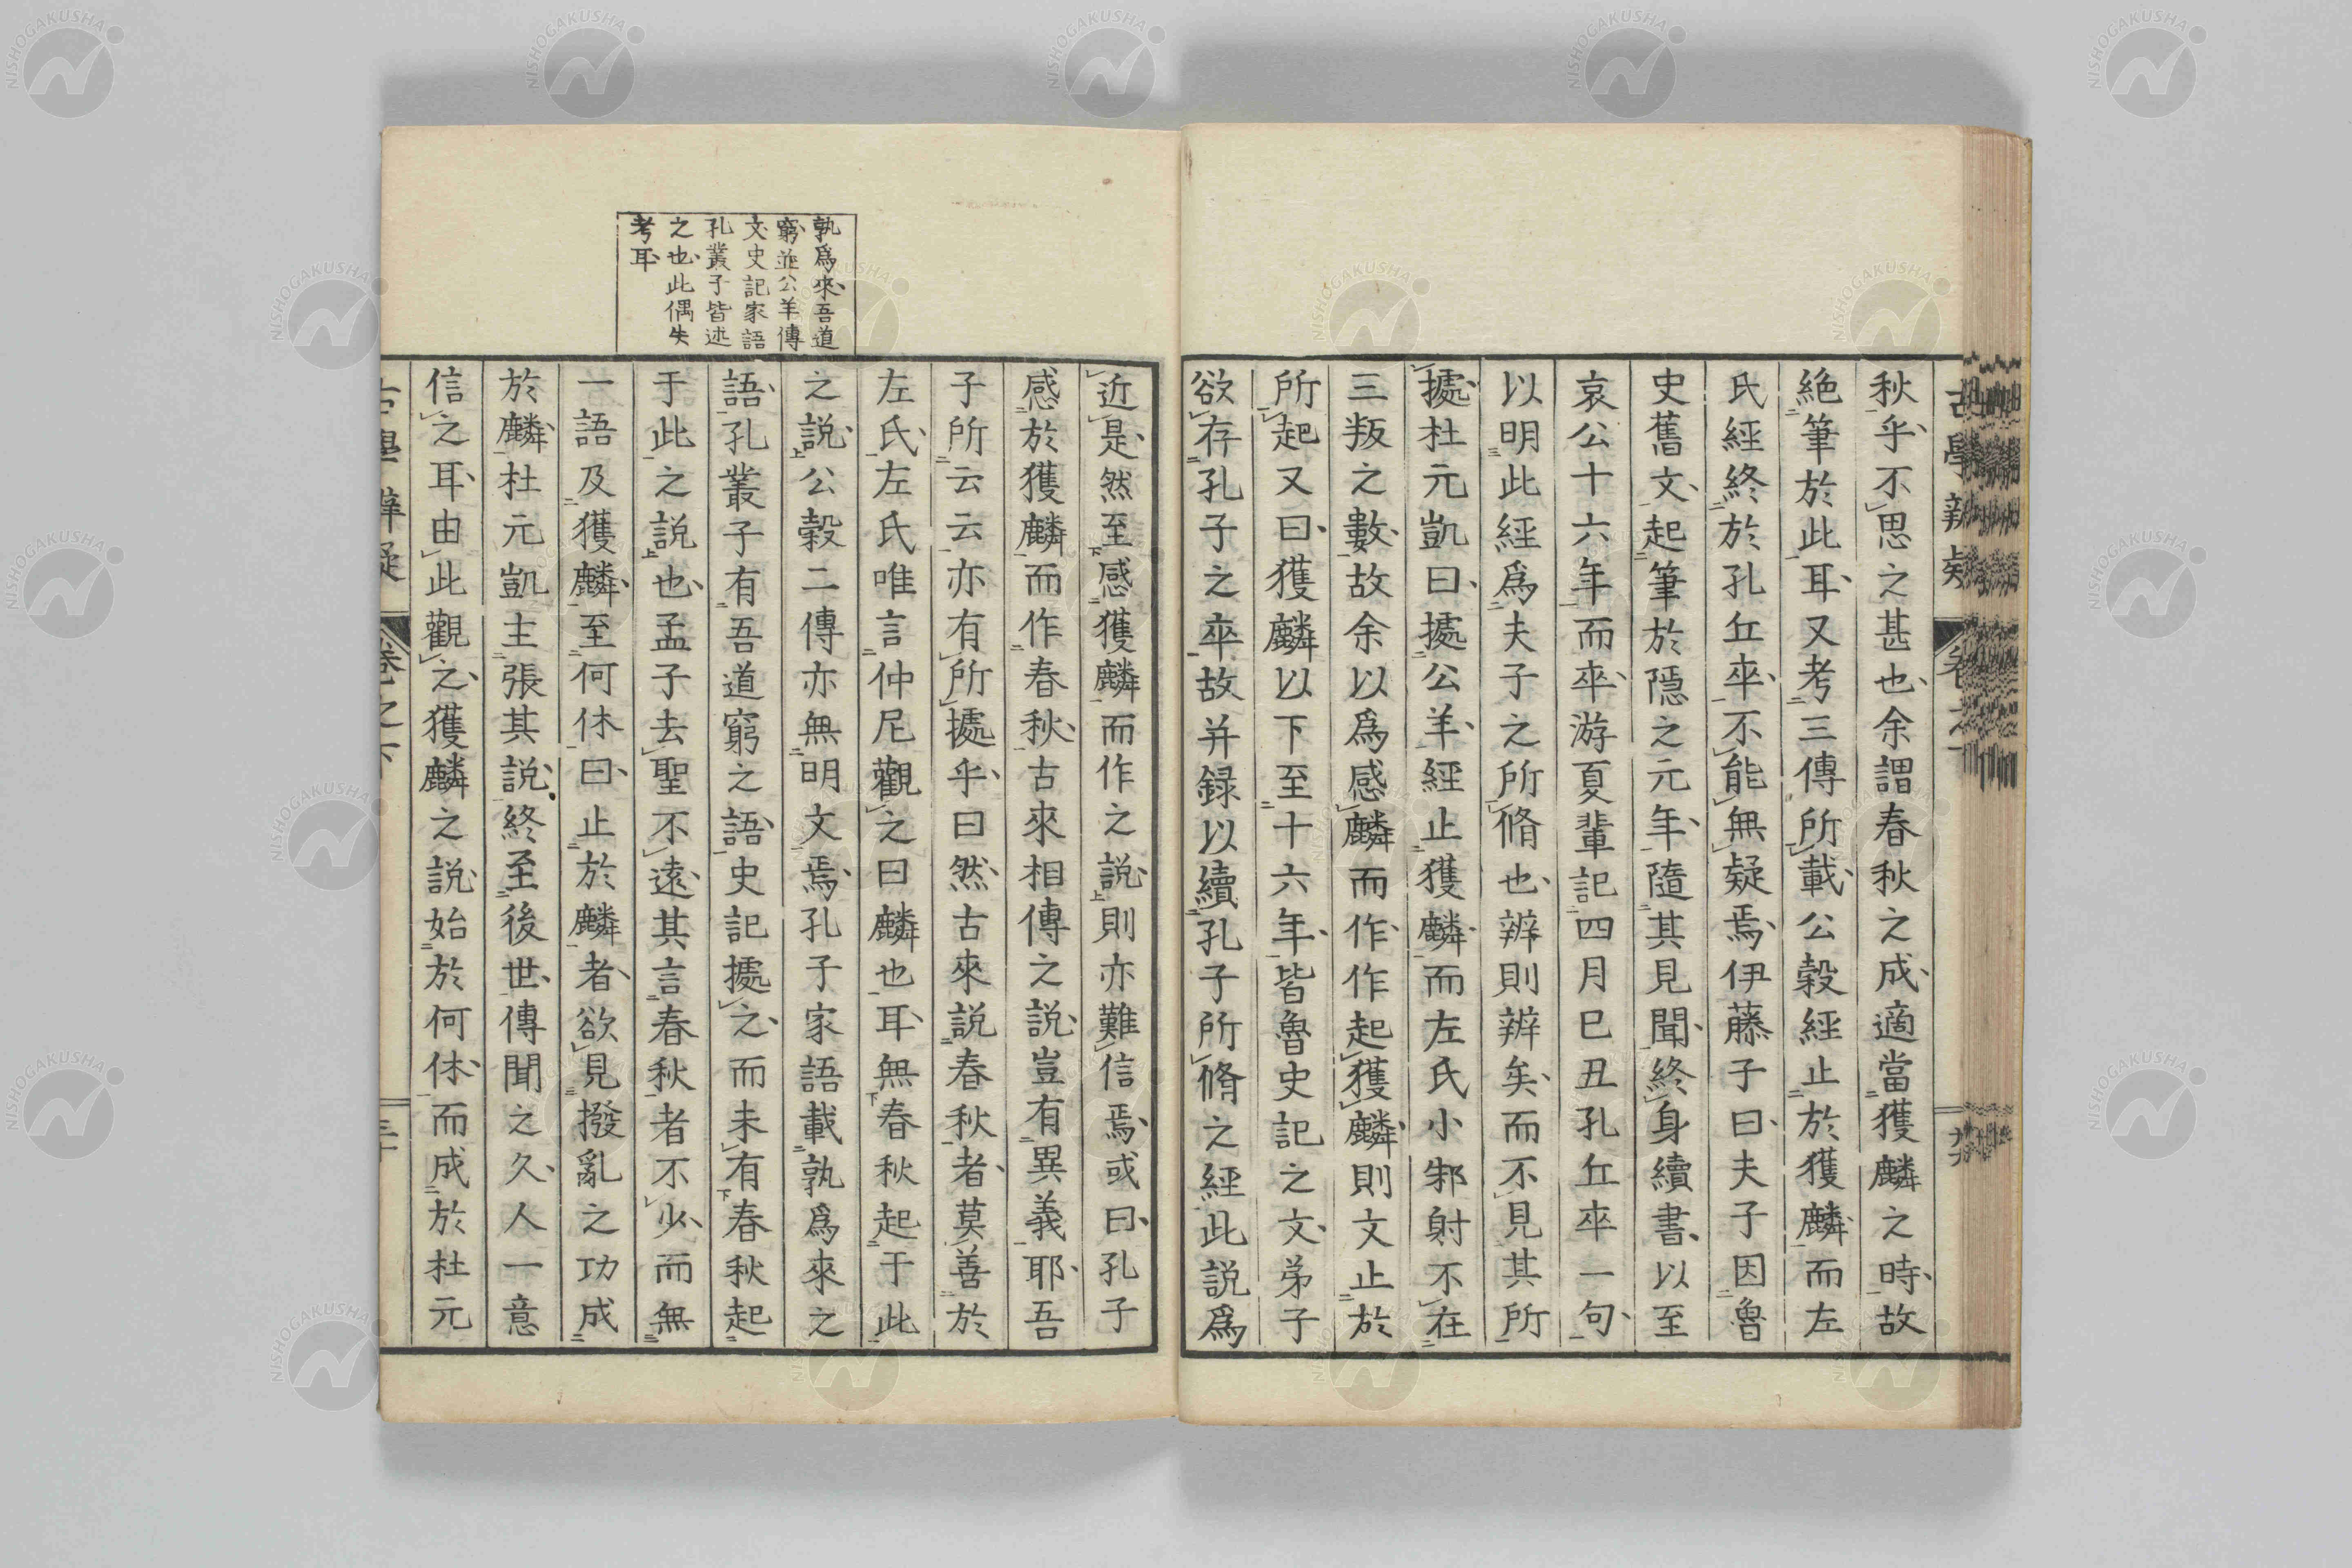 秋乎不思之甚也余謂春秋之成適當獲麟之時故
絕筆於此耳又考三傳所載公穀經止於獲麟而左
氏經終於孔丘卒不能無疑焉伊藤子曰夫子因魯
史舊文起筆於隱之元年隨其見聞終身續書以至
哀公十六年而卒游夏輩記四月己丑孔丘卒一句
以明此經爲夫子之所脩也辨則辨矣而不見其所
據杜元凱曰據公羊經止獲麟而左氏小邾射不在
三叛之數故余以爲感麟而作作起獲麟則文止於
所起又曰獲麟以下至十六年皆魯史記之文弟子
欲存孔子之卒故并録以續孔子所脩之經此説爲
孰爲來吾道
窮並公羊傳
文史記家語
孔叢子皆述
之也此偶失
考耳
近是然至感獲麟而作之説則亦難信焉或曰孔子
感於獲麟而作春秋古來相傳之説豈有異義耶吾
子所云云亦有所據乎曰然古來説春秋者莫善於
左氏左氏唯言仲尼觀之曰麟也耳無春秋起于此
之説公穀二傳亦無明文焉孔子家語載孰爲來之
語孔叢子有吾道窮之語史記據之而未有春秋起
于此之説也孟子去聖不遠其言春秋者不少而無
一語及獲麟至何休曰止於麟者欲見撥亂之功成
於麟杜元凱主張其説終至後世傳聞之久人一意
信之耳由此觀之獲麟之説始於何休而成於杜元
NISHOGAKUSHA